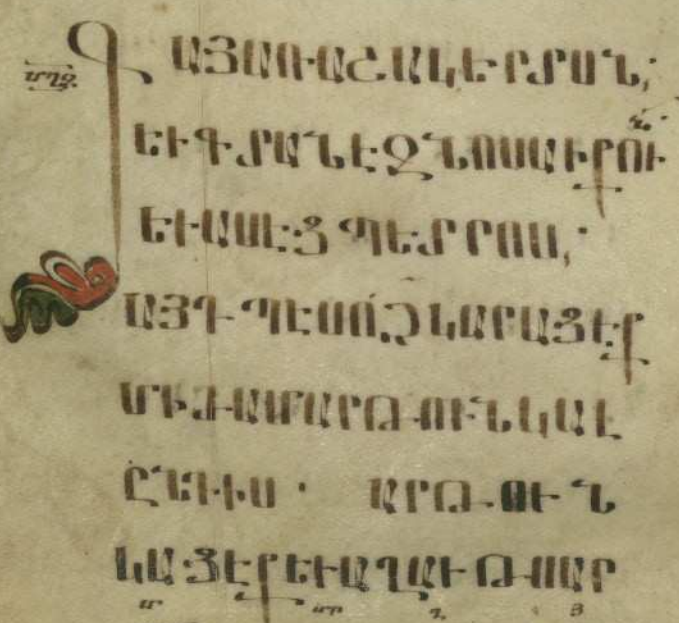 մղզ
ԳԱՅԱՌԱՇԱԿԵՐՏՍՆ,
ԵՒԳՏԱՆԷԶՆՈՍԱԻՔՈՒն
ԵՒԱՍԷՑՊԵՏՐՈՍ,
ԱՅԴՊԷՍՈ՛ՉԿԱՐԱՑԷՔ
ՄԻԺԱՄԱՐԹՈՒՆԿԱԼ
ԸՆԴԻՍ · ԱՐԹՈՒՆ
ԿԱՑԷՔԵՒԱՂԱՒԹՍԱՐ